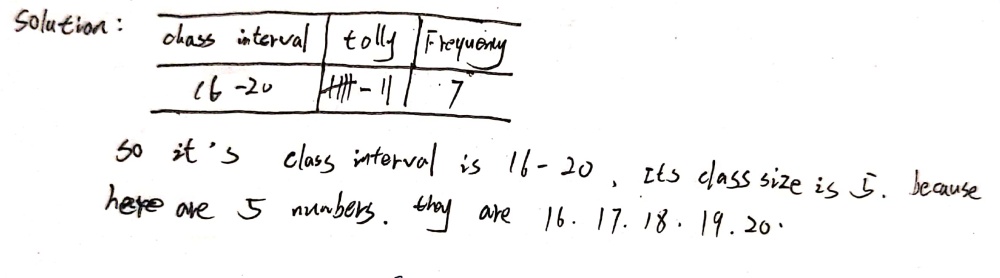 Solution:
chass interval tolly Frequency
16-20 卌-11 7
so it's class interval is 16-20, Its class size is 5. because
here are 5 numbers. they are 16. 17. 18. 19. 20.